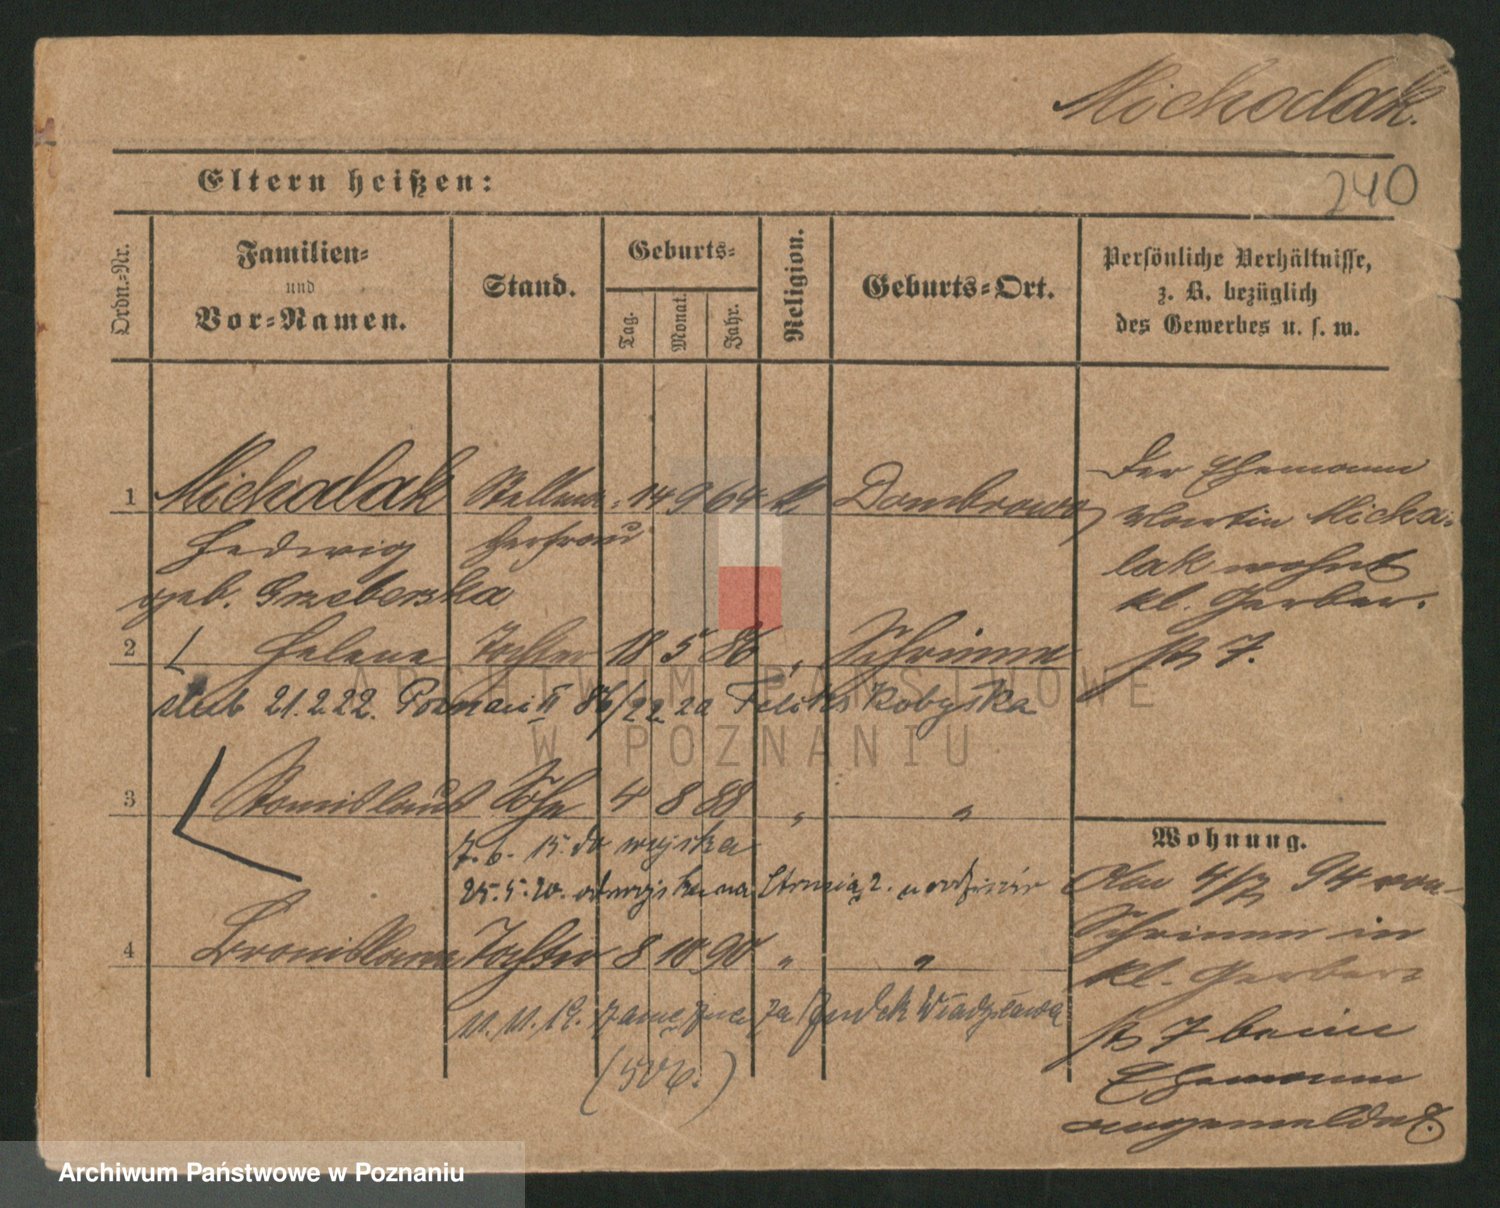 Michalak.
240
Eltern heißen:
Ordn.-Nr.
Familien-
und
Vor-Namen.
Stand.
Geburts-
Tag.
Monat.
Jahr.
Religion.
Geburts-Ort.
Persönliche Verhältnisse,
z. B. bezüglich
des Gewerbes u. s. w.
1 Michalak Stellm.- 14 9 64 k Dombrowo
Hedwig Ehefrau
geb. Grzeberska
Der Ehemann
Martin Micha-
lak wohnt
kl. Gerber-
str 7.
2 Helene Tochter 18 5 86 " Schrimm
ślub 21.2.22. Poznań II 86/22 za Feliks Kobyłka
3 Stanislaus Sohn 4 8 88 " "
7.6. 15. do wojska
25.5.20. od wojska na
4 Bronislawa Tochter 8 10 90 " "
11.11.19. zamężna za Władysława
Wohnung.
Am 4/7 94 von
Schrimm in
kl. Gerber-
str 7 beim
Ehemann
angemeldet.
ARCHIWUM PAŃSTWOWE
W POZNANIU
Archiwum Państwowe w Poznaniu